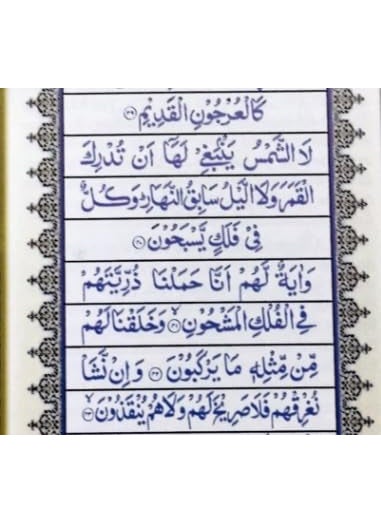 كَالْعُرْجُوْنِ الْقَدِيْمِ ﴿۳۹﴾
لَا الشَّمْسُ يَنْۢبَغِيْ لَهَاۤ اَنْ تُدْرِكَ
الْقَمَرَ وَلَا الَّيْلُ سَابِقُ النَّهَارِ ؕ وَكُلٌّ
فِيْ فَلَكٍ يَّسْبَحُوْنَ ﴿۴۰﴾
وَاٰيَةٌ لَّهُمْ اَنَّا حَمَلْنَا ذُرِّيَّتَهُمْ
فِي الْفُلْكِ الْمَشْحُوْنِ ﴿۴۱﴾ۙ وَخَلَقْنَا لَهُمْ
مِّنْ مِّثْلِهٖ مَا يَرْكَبُوْنَ ﴿۴۲﴾ وَاِنْ نَّشَاْ
نُغْرِقْهُمْ فَلَا صَرِيْخَ لَهُمْ وَلَا هُمْ يُنْقَذُوْنَ ﴿۴۳﴾ۙ